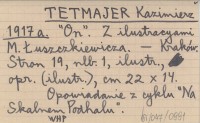 TETMAJER Kazimierz
1917 a. "On". Z ilustracyami
M. Łuszczkiewicza. — Kraków.
Stron 19, nlb. 1, ilustr.,
opr. (ilustr.), cm 22 x 14.
Opowiadanie z cyklu "Na
Skalnem Podhalu".
WMP